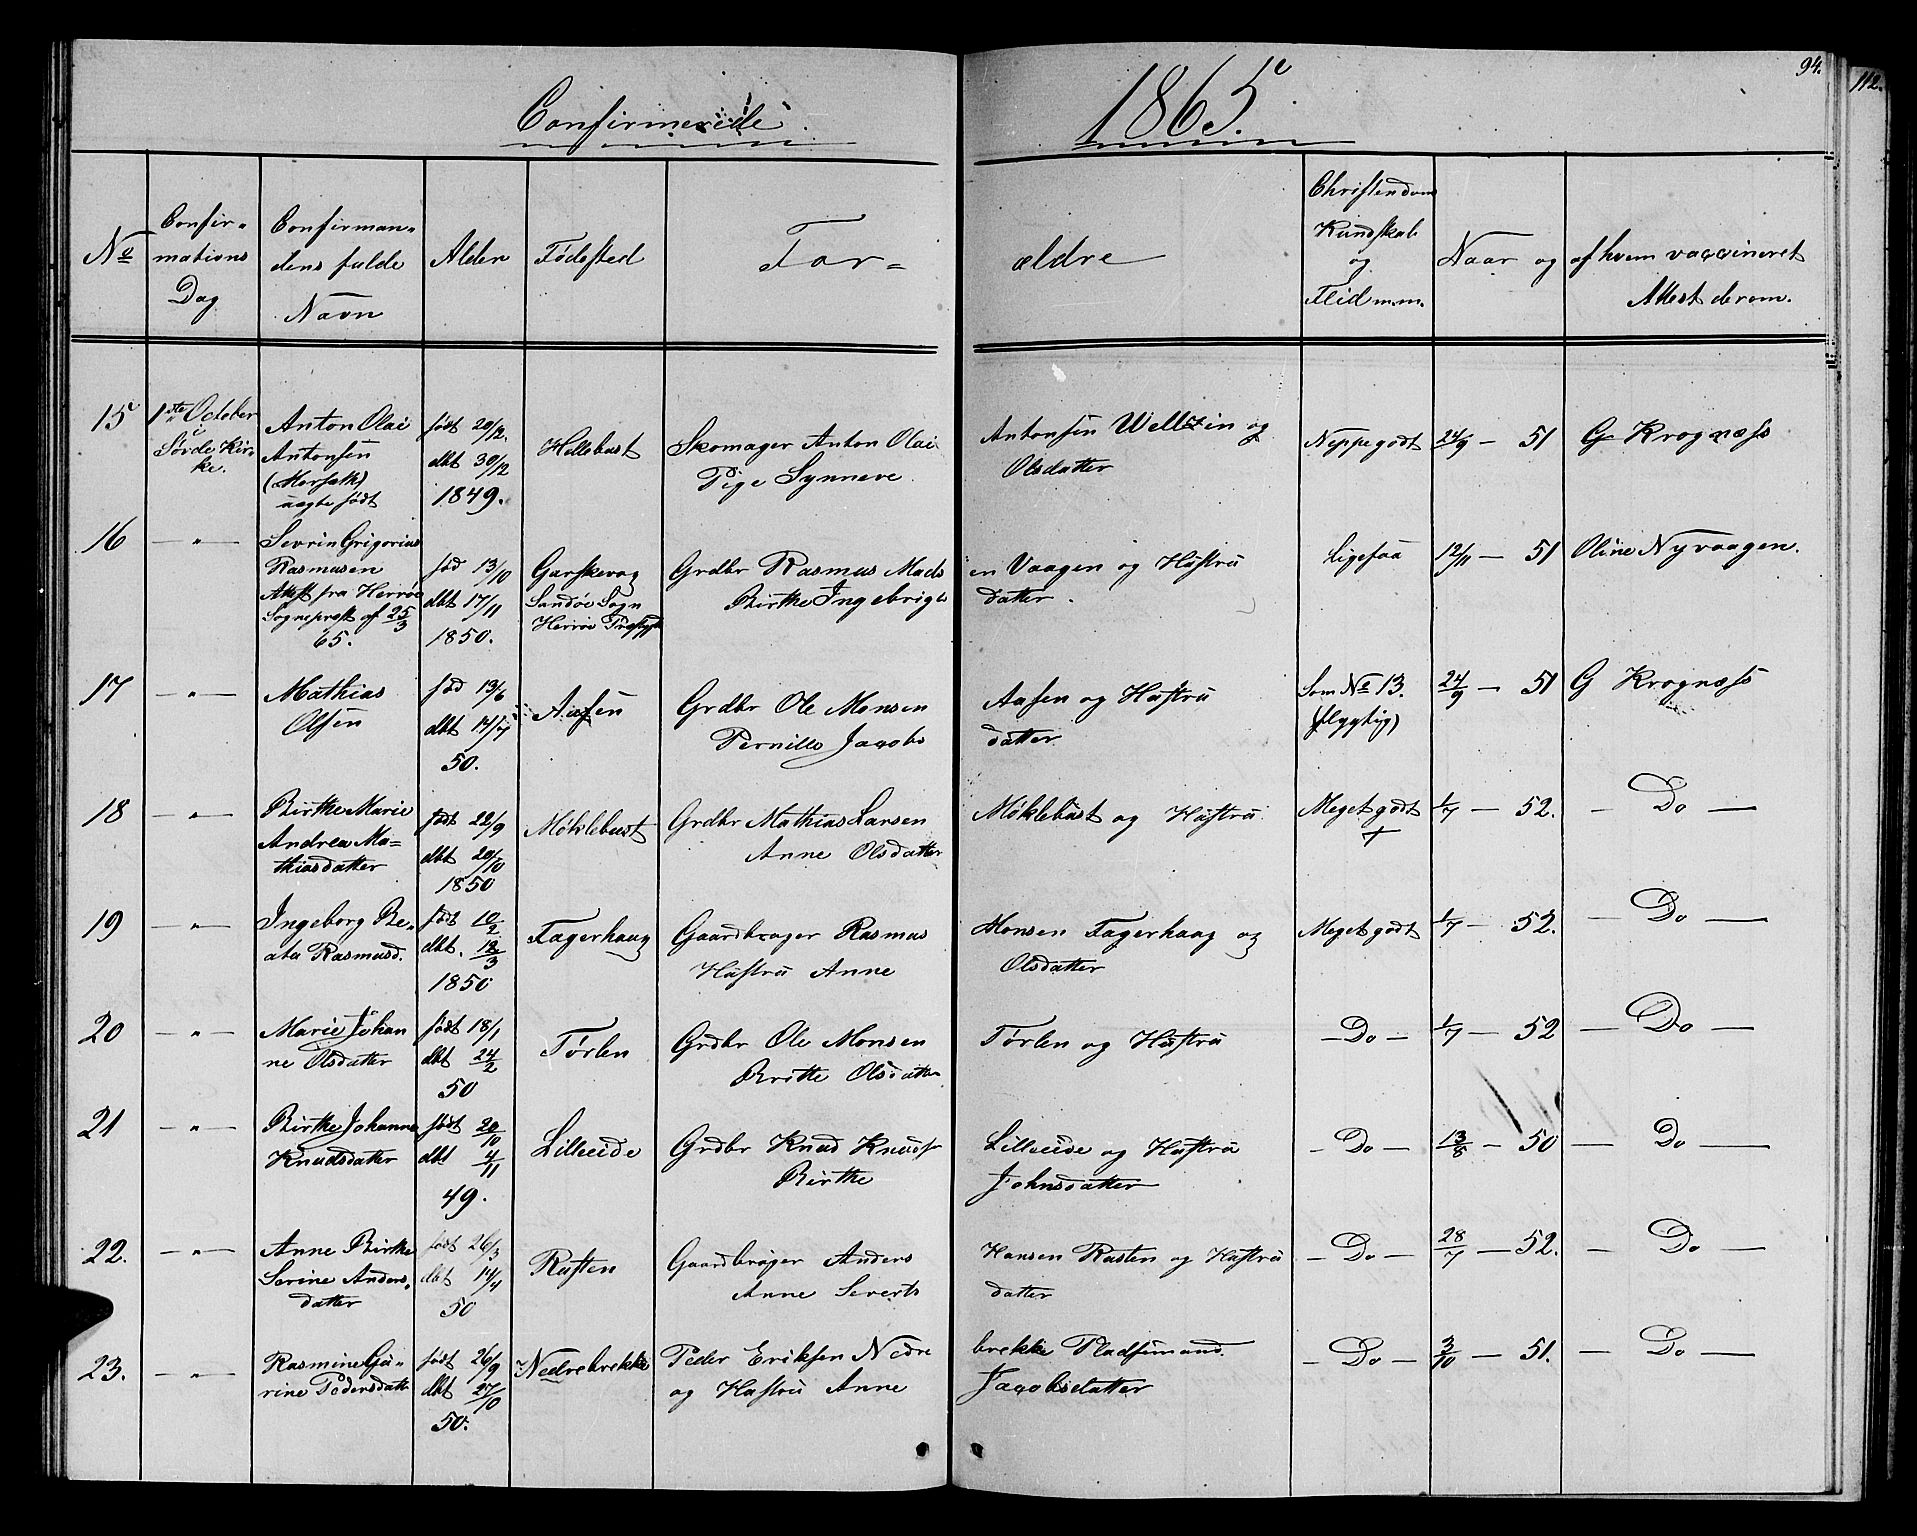 Confirmerede 1865.
94.
112.
No
Confir-
mations
Dag
Confirman-
dens fulde
Navn
Alder
Fødested
For-
ældre
Christendoms
Kundskab
og
Flid m.m.
Naar og af hvem vaccineret
Attest derom.
15 1ste October
i
Søvde Kir-
ke.
Anton Olai
Antonsen
uægte født
født 20/12.
dbt 30/12
1849.
Hellebust
Skomager Anton Olai Antonsen Wellsin og
Pige Synneve Olsdatter
Neppe godt
24/9 — 51 G Krognæss
16 — " —
Sevrin Grigorius
Rasmusen
Attest fra Herrøe
Sogneprest af 25/3
65.
fød 13/10
dbt 17/11
1850.
Gurskevog
Sandøe Sogn
Herrøe Præstgjd
Grdbr Rasmus Madsen Vaagen og Hustru
Birthe Ingebrigtsdatter.
Ligesaa
12/11 — 51 Oline Nyvaagen.
17 — " —
Mathias
Olsen
fød 13/6
dbt 14/7
50.
Aasen
Grdbr Ole Monsen Aasen og Hustru
Pernille Jacobsdatter
Som No 13.
(flygtig)
24/9 — 51 G Krognæss
18 — " —
Birthe Marie
Andrea Ma-
thiasdatter
født 22/9
dbt 20/10
1850
Møklebust
Grdbr Mathias Larsen Møklebust og Hustru
Anne Olsdatter
Meget godt
+
1/7 — 52. — Do —
19 — " —
Ingeborg Be-
ata Rasmusd.
født 10/2
dbt. 18/3
1850
Fagerhaug
Gaardbruger Rasmus Monsen Fagerhaug og
Hustru Anne Olsdatter
Meget godt
1/7 — 52. — Do —
20 — " —
Marie Johan
ne Olsdatter
født 18/1
dbt 24/2
50
Tørlen
Grdbr Ole Monsen Tørlen og Hustru
Britte Olsdatter
— Do —
1/7 — 52 — Do —
21 — " —
Birthe Johanne
Knudsdatter
født 20/10
dbt 4/11
49.
Lilleeide
Grdbr Knud Knuds Lilleeide og Hustru
Birthe Johnsdatter
— Do —
13/8 — 50 — Do —
22. — " —
Anne Birthe
Serine Anders-
datter
født 26/3
dbt 14/4
50
Rusten
Gaardbruger Anders Hansen Rusten og Hustru
Anne Severtsdatter
— Do —
28/7 — 52. — Do —
23. — " —
Rasmine Gu-
rine Pedersdatt
født 26/9
dbt 27/10
50.
Nedrebrekke
Peder Eriksen Nedrebrekke Pladsemand
og Hustru Anne Jacobsdatter
— Do —
3/10 — 51. — Do —